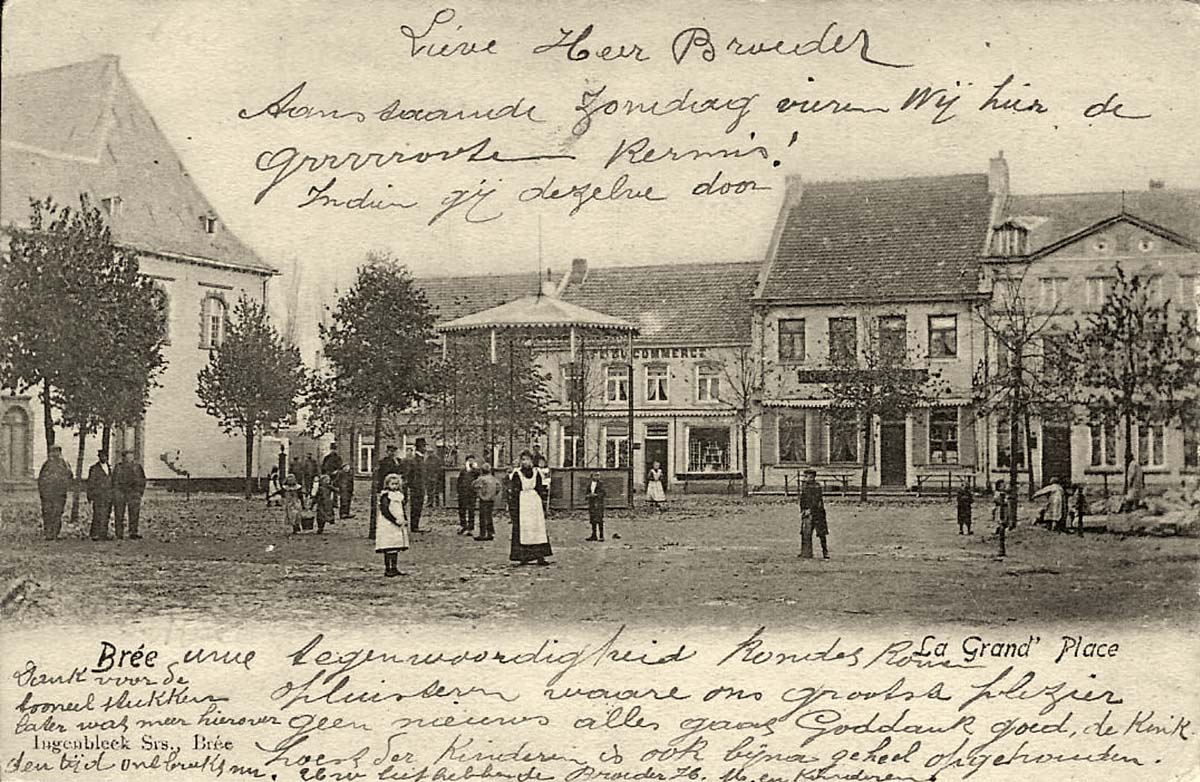 Lieve Heer Broeder
Aanstaande Zondag vieren Wij hier de
grrrrroote Kermis!
Indien gij dezelve door
DU COMMERCE
Brée
La Grand' Place
uwe tegenwoordigheid kondet
opluisteren waare ons grootste plezier
geen nieuws alles gaat Goddank goed, de Kink
hoest der Kinderen is ook bijna geheel opgehouden.
liefhebbende Broeder H. en Kinderen
Dank voor de
tooneelstukken
later wat meer hierover
Ingenbleek Srs., Brée
den tijd ontbreekt nu.